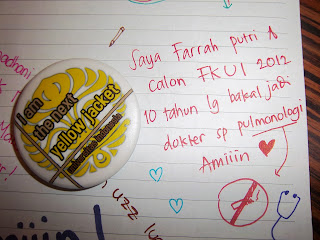 Saya Farrah putri A
Calon FKUI 2012
10 tahun lg bakal jadi
dokter sp pulmonologi
Amiiin
i am
the next
yellow jacket
uzz